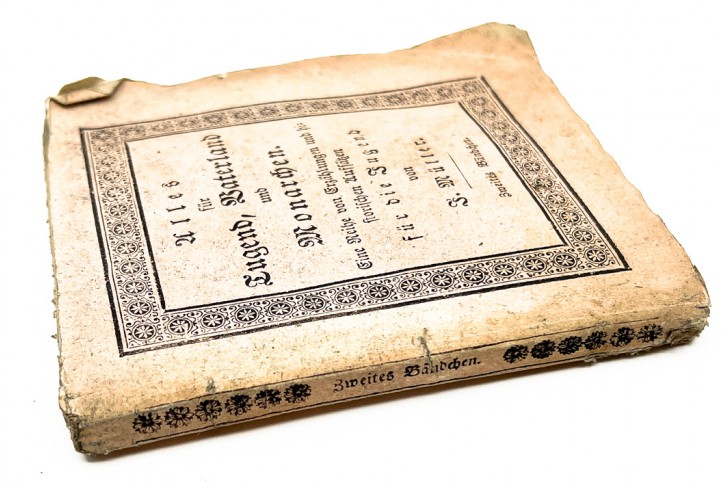 Alles
für
Tugend, Vaterland
und
Monarchen.
Eine Reihe von Erzählungen und hi-
storischen Aufsätzen
für die Jugend
von
F. Müller.
Zweites Bändchen.
Zweites Bändchen.